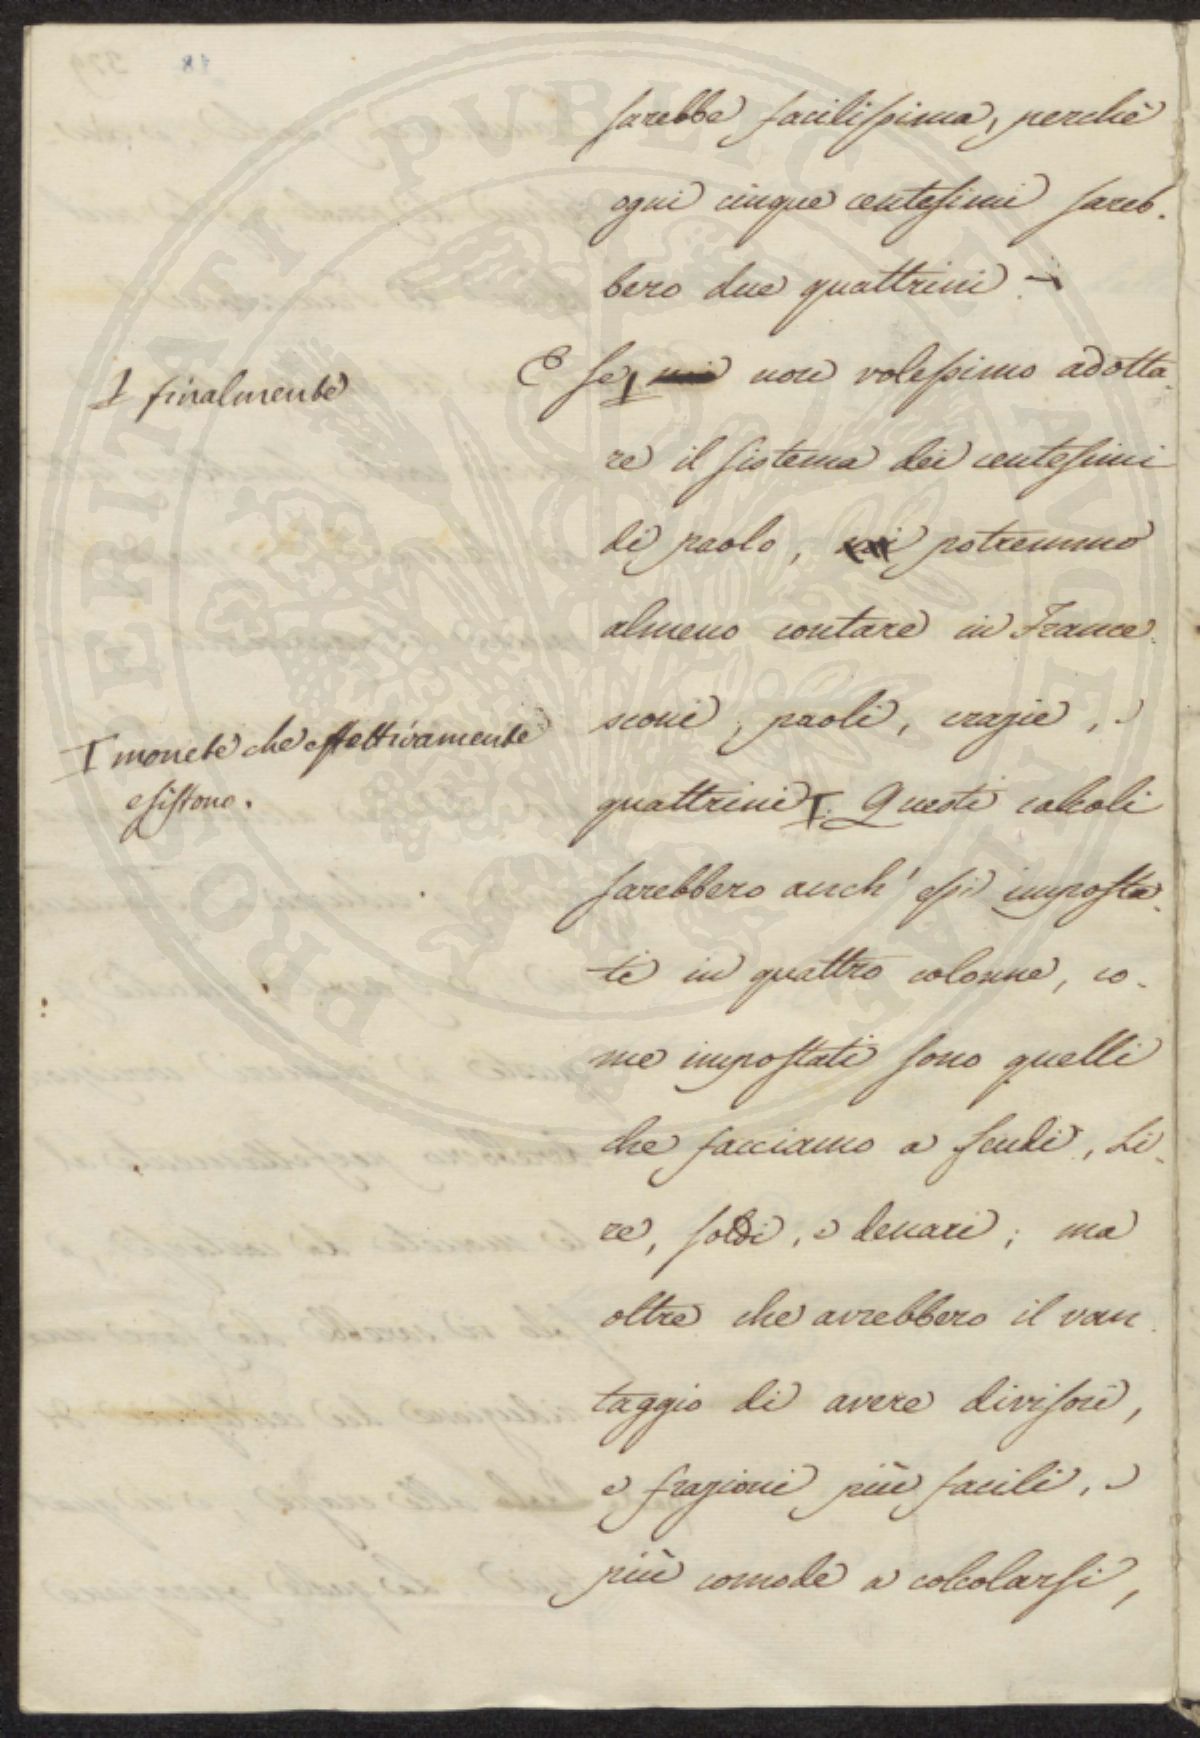 sarebbe facilissima, perchè
ogni cinque centesimi sareb-
bero due quattrini -
E se, noi non volessimo adotta-
re il sistema dei centesimi
di paolo, noi potremmo
almeno contare in France-
sconi, paoli, crazie, e
quattrini. Questi calcoli
sarebbero anch' essi imposta-
ti in quattro colonne, co-
me impostati sono quelli
che facciamo a scudi, li-
re, soldi, e denari; ma
oltre che avrebbero il van-
taggio di avere divisori,
e frazioni più facili, e
più comode a calcolarsi,
finalmente
monete che effettivamente
esistono.
PROSPERITATI PUBLICAE AUGENDAE